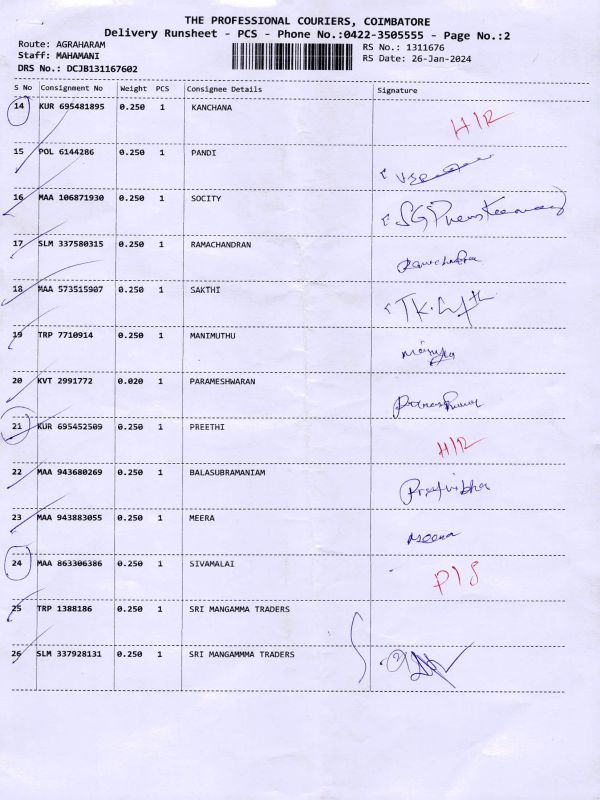 THE PROFESSIONAL COURIERS, COIMBATORE
Delivery Runsheet - PCS - Phone No.:0422-3505555 - Page No.:2
Route: AGRAHARAM
Staff: MAHAMANI
DRS No.: DCJB131167602
RS No.: 1311676
RS Date: 26-Jan-2024
S No Consignment No Weight PCS Consignee Details Signature
14 KUR 695481895 0.250 1 KANCHANA H/R
15 POL 6144286 0.250 1 PANDI
16 MAA 106871930 0.250 1 SOCITY
17 SLM 337580315 0.250 1 RAMACHANDRAN
18 MAA 573515907 0.250 1 SAKTHI
19 TRP 7710914 0.250 1 MANIMUTHU
20 KVT 2991772 0.020 1 PARAMESHWARAN
21 KUR 695452509 0.250 1 PREETHI H/R
22 MAA 943680269 0.250 1 BALASUBRAMANIAM
23 MAA 943883055 0.250 1 MEERA
24 MAA 863306386 0.250 1 SIVAMALAI P/S
25 TRP 1388186 0.250 1 SRI MANGAMMA TRADERS
26 SLM 337928131 0.250 1 SRI MANGAMMMA TRADERS